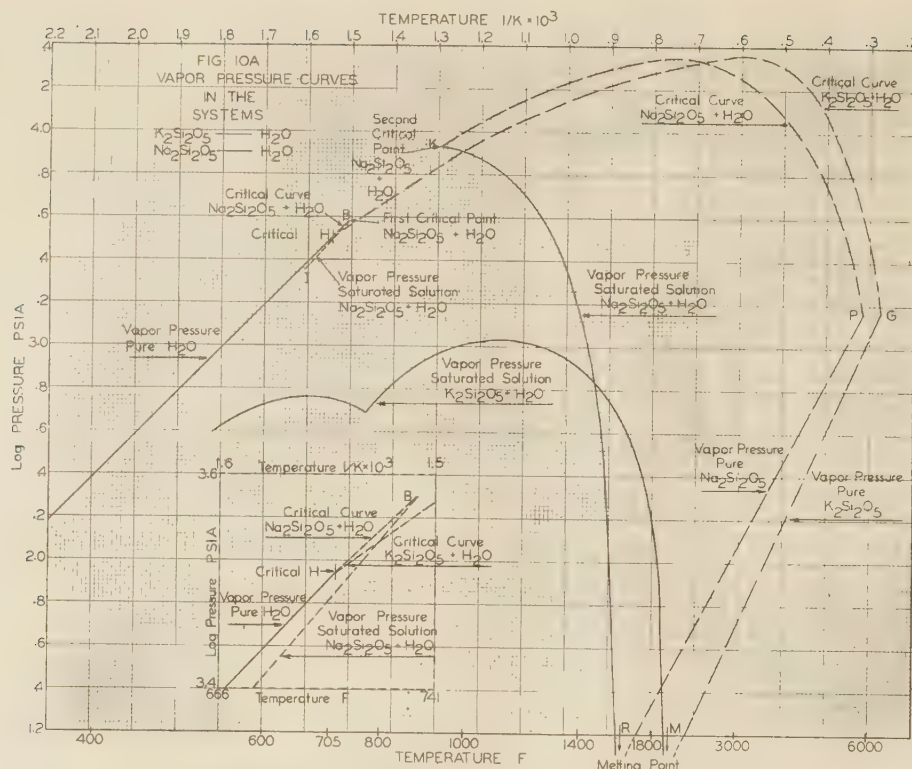 TEMPERATURE 1/K × 10-3
2.2 2.1 2.0 1.9 1.8 1.7 1.6 1.5 1.4 1.3 1.2 1.1 1.0 .9 .8 .7 .6 .5 .4 .3 .2
FIG 10A
VAPOR PRESSURE CURVES
IN THE
SYSTEMS
K2Si2O5 — H2O
Na2Si2O5 — H2O
Second
Critical
Point
Na2Si2O5
+
H2O
K
Critical Curve
Na2Si2O5 + H2O
Critical Curve
K2Si2O5+H2O
Critical Curve
Na2Si2O5 + H2O
B
First Critical Point
Na2Si2O5 + H2O
Critical H
Vapor Pressure
Saturated Solution
Na2Si2O5+H2O
Vapor Pressure
Saturated Solution
Na2Si2O5+H2O
P G
Vapor Pressure
Pure H2O
Vapor Pressure
Saturated Solution
K2Si2O5+H2O
Vapor Pressure
Pure
Na2Si2O5
Vapor Pressure
Pure
K2Si2O5
Log PRESSURE PSIA
.4
.2
4.0
.8
.6
.4
.2
3.0
.8
.6
.2
2.0
.8
.6
.4
1.2
1.6 Temperature 1/K×10-3 1.5
3.6
B
Critical Curve
Na2Si2O5+H2O
Critical Curve
K2Si2O5 + H2O
Critical H
Vapor Pressure
Pure H2O
Vapor Pressure
Saturated Solution
Na2Si2O5+H2O
Log Pressure PSIA
3.4
666 Temperature F 741
R M
400 600 705 800 1000 1400 1800 3000 6000
TEMPERATURE F
Melting Point